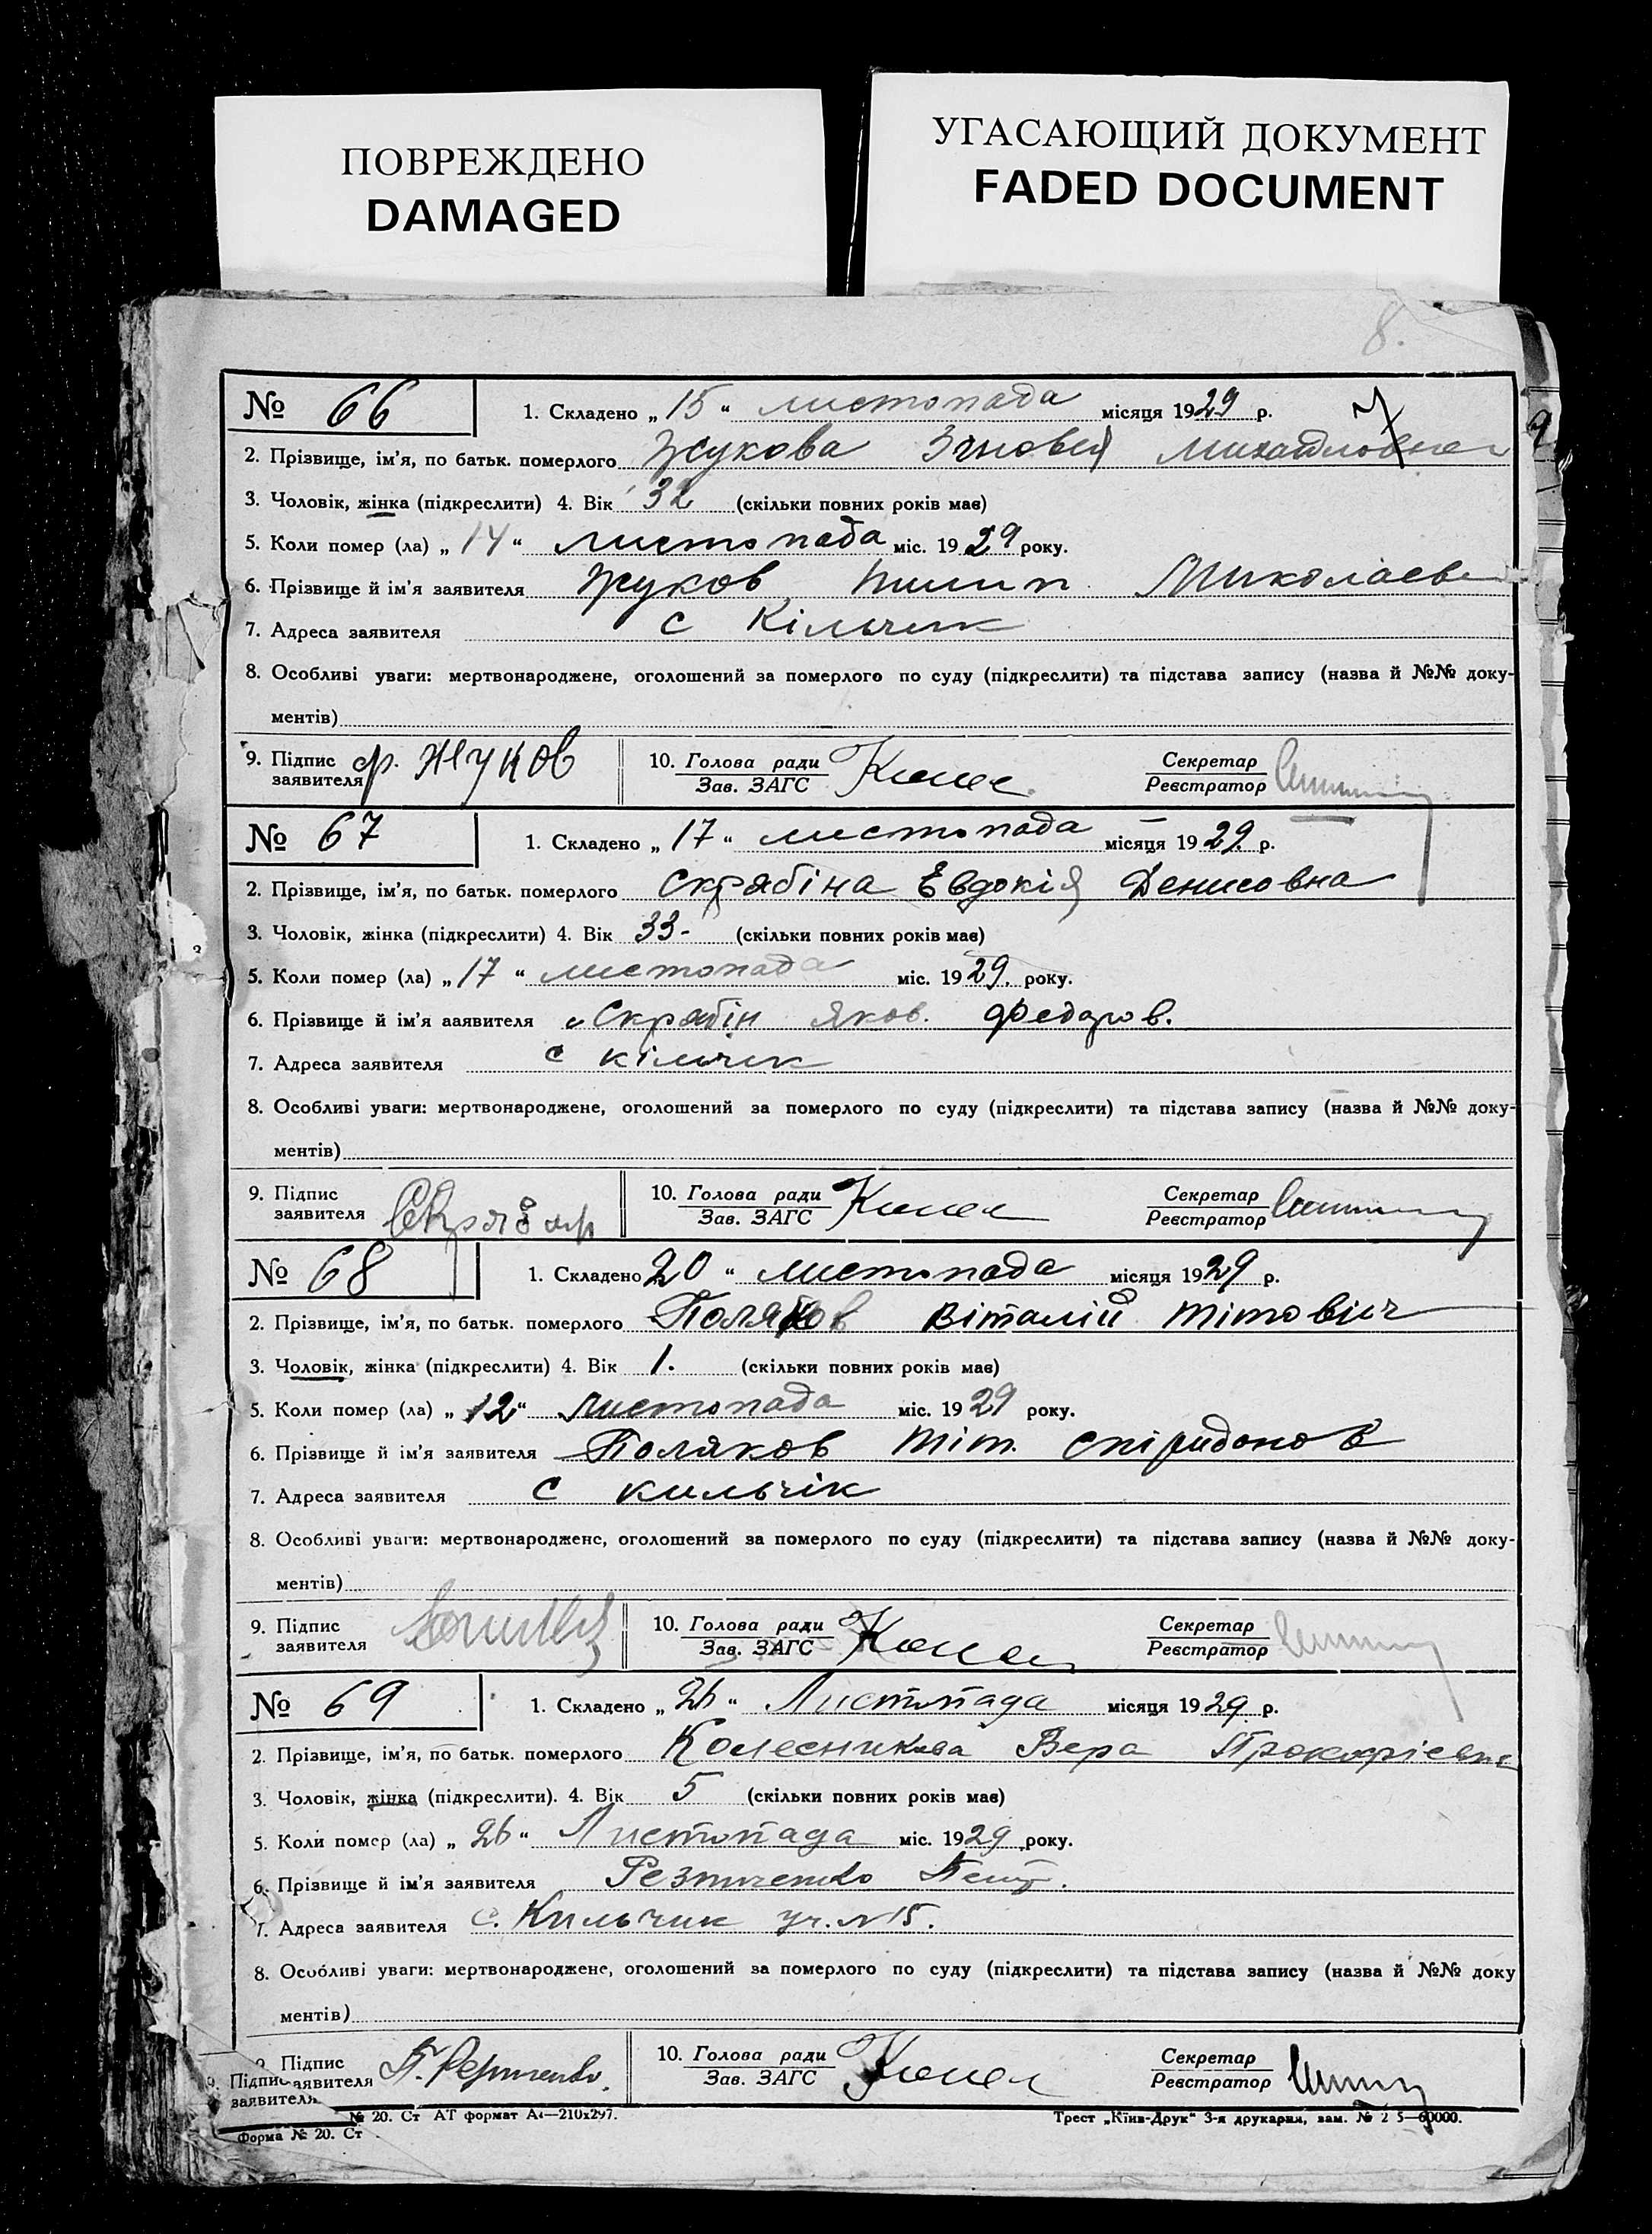 ПОВРЕЖДЕНО
DAMAGED
УГАСАЮЩИЙ ДОКУМЕНТ
FADED DOCUMENT
8.
№ 66 1. Складено „15“ листопада місяця 1929 р.
2. Прізвище, ім’я, по батьк. померлого Жукова Зиновея Михайловна
3. Чоловік, жінка (підкреслити) 4. Вік 32 (скільки повних років має)
5. Коли помер (ла) „14“ листопада міс. 1929 року.
6. Прізвище й ім’я заявителя Жуков Пилип Миколаев
7. Адреса заявителя с Кільчик
8. Особливі уваги: мертвонароджене, оголошений за померлого по суду (підкреслити) та підстава запису (назва й №№ доку-
ментів)
9. Підпис заявителя ф. Жуков 10. Голова ради Зав. ЗАГС Секретар Реєстратор
№ 67 1. Складено „17“ листопада місяця 1929. р.
2. Прізвище, ім’я, по батьк. померлого Скрябіна Евдокія Денисовна
3. Чоловік, жінка (підкреслити) 4. Вік 33- (скільки повних років має)
5. Коли помер (ла) „17“ листопада міс. 1929. року.
6. Прізвище й ім’я заявителя Скрябін Яков. Федоров.
7. Адреса заявителя с кільчик
8. Особливі уваги: мертвонароджене, оголошений за померлого по суду (підкреслити) та підстава запису (назва й №№ доку-
ментів)
9. Підпис заявителя 10. Голова ради Зав. ЗАГС Секретар Реєстратор
№ 68 1. Складено 20“ листопада місяця 1929 р.
2. Прізвище, ім’я, по батьк. померлого Поляков Віталій Тітовіч
3. Чоловік, жінка (підкреслити) 4. Вік 1. (скільки повних років має)
5. Коли помер (ла) „12“ листопада міс. 1929 року.
6. Прізвище й ім’я заявителя Поляков Тіт. Спіридонов
7. Адреса заявителя с кильчік
8. Особливі уваги: мертвонароджене, оголошений за померлого по суду (підкреслити) та підстава запису (назва й №№ доку-
ментів)
9. Підпис заявителя 10. Голова ради Зав. ЗАГС Секретар Реєстратор
№ 69 1. Складено „26“ Листопада місяця 1929 р.
2. Прізвище, ім’я, по батьк. померлого Колесникова Вера Прокофієвна
3. Чоловік, жінка (підкреслити). 4. Вік 5 (скільки повних років має)
5. Коли помер (ла) „26“ Листопада міс. 1929 року.
6. Прізвище й ім’я заявителя Резниченко
7. Адреса заявителя с. Кильчик уч. №15.
8. Особливі уваги: мертвонароджене, оголошений за померлого по суду (підкреслити) та підстава запису (назва й №№ доку
ментів)
9. Підпис заявителя 10. Голова ради Зав. ЗАГС Секретар Реєстратор
№ 20. Ст АТ формат А4—210х297. Трест „Київ-Друк“ 3-я друкарня, зам.
Форма № 20. Ст